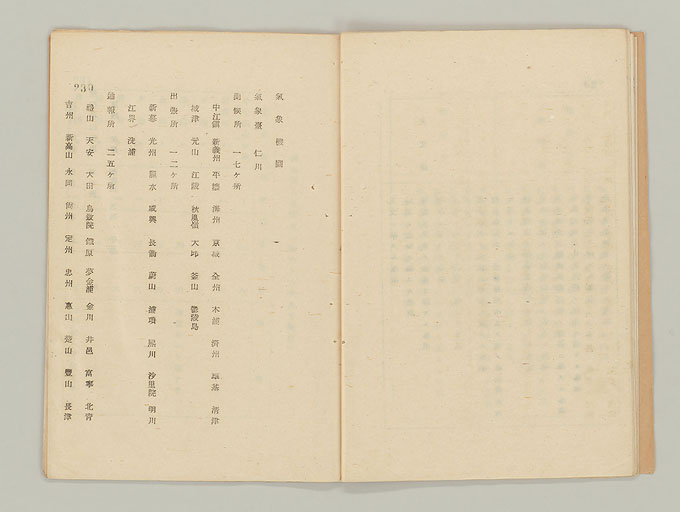 氣象機關
氣象臺 仁川
測候所 一七ケ所
中江鎭 新義州 平壤 海州 京城 全州 木浦 濟州 雄基 淸津
城津 元山 江陵 秋風嶺 大邱 釜山 鬱陵島
出張所 一二ケ所
新幕 光州 麗水 咸興 長箭 蔚山 浦項 陽川 沙里院 明川
江界 洗浦
通報所 二五ケ所
天安 大田 鳥致院 夢金浦 金川 井邑 富寧 北靑
吉州 新高山 永同 尙州 定州 忠州 惠山 楚山 豐山 長津
230